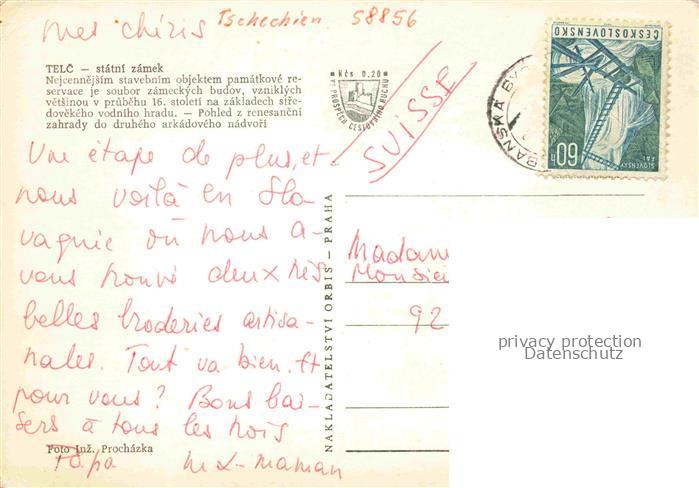 mes chéris
Tschechien 58856
TELČ — státní zámek
Nejcennějším stavebním objektem památkové re-
servace je soubor zámeckých budov, vzniklých
většinou v průběhu 16. století na základech stře-
dověkého vodního hradu. — Pohled z renesanční
zahrady do druhého arkádového nádvoří
Kčs 0.20
VE PROSPĚCH CESTOVNÍHO RUCHU
ČESKOSLOVENSKO
SLOVENSKÝ RAJ
60 h
BANSKÁ BY
SUISSE
Une étape de plus, et
nous voilà en Slo-
vaquie où nous a-
vons trouvé deux très
belles broderies artisa-
nales. Tout va bien. Et
pour vous? Bons bai-
sers à tous les trois
Papa maman
Foto Inž. Procházka
NAKLADATELSTVÍ ORBIS — PRAHA
Madame
Monsie
92
privacy protection
Datenschutz